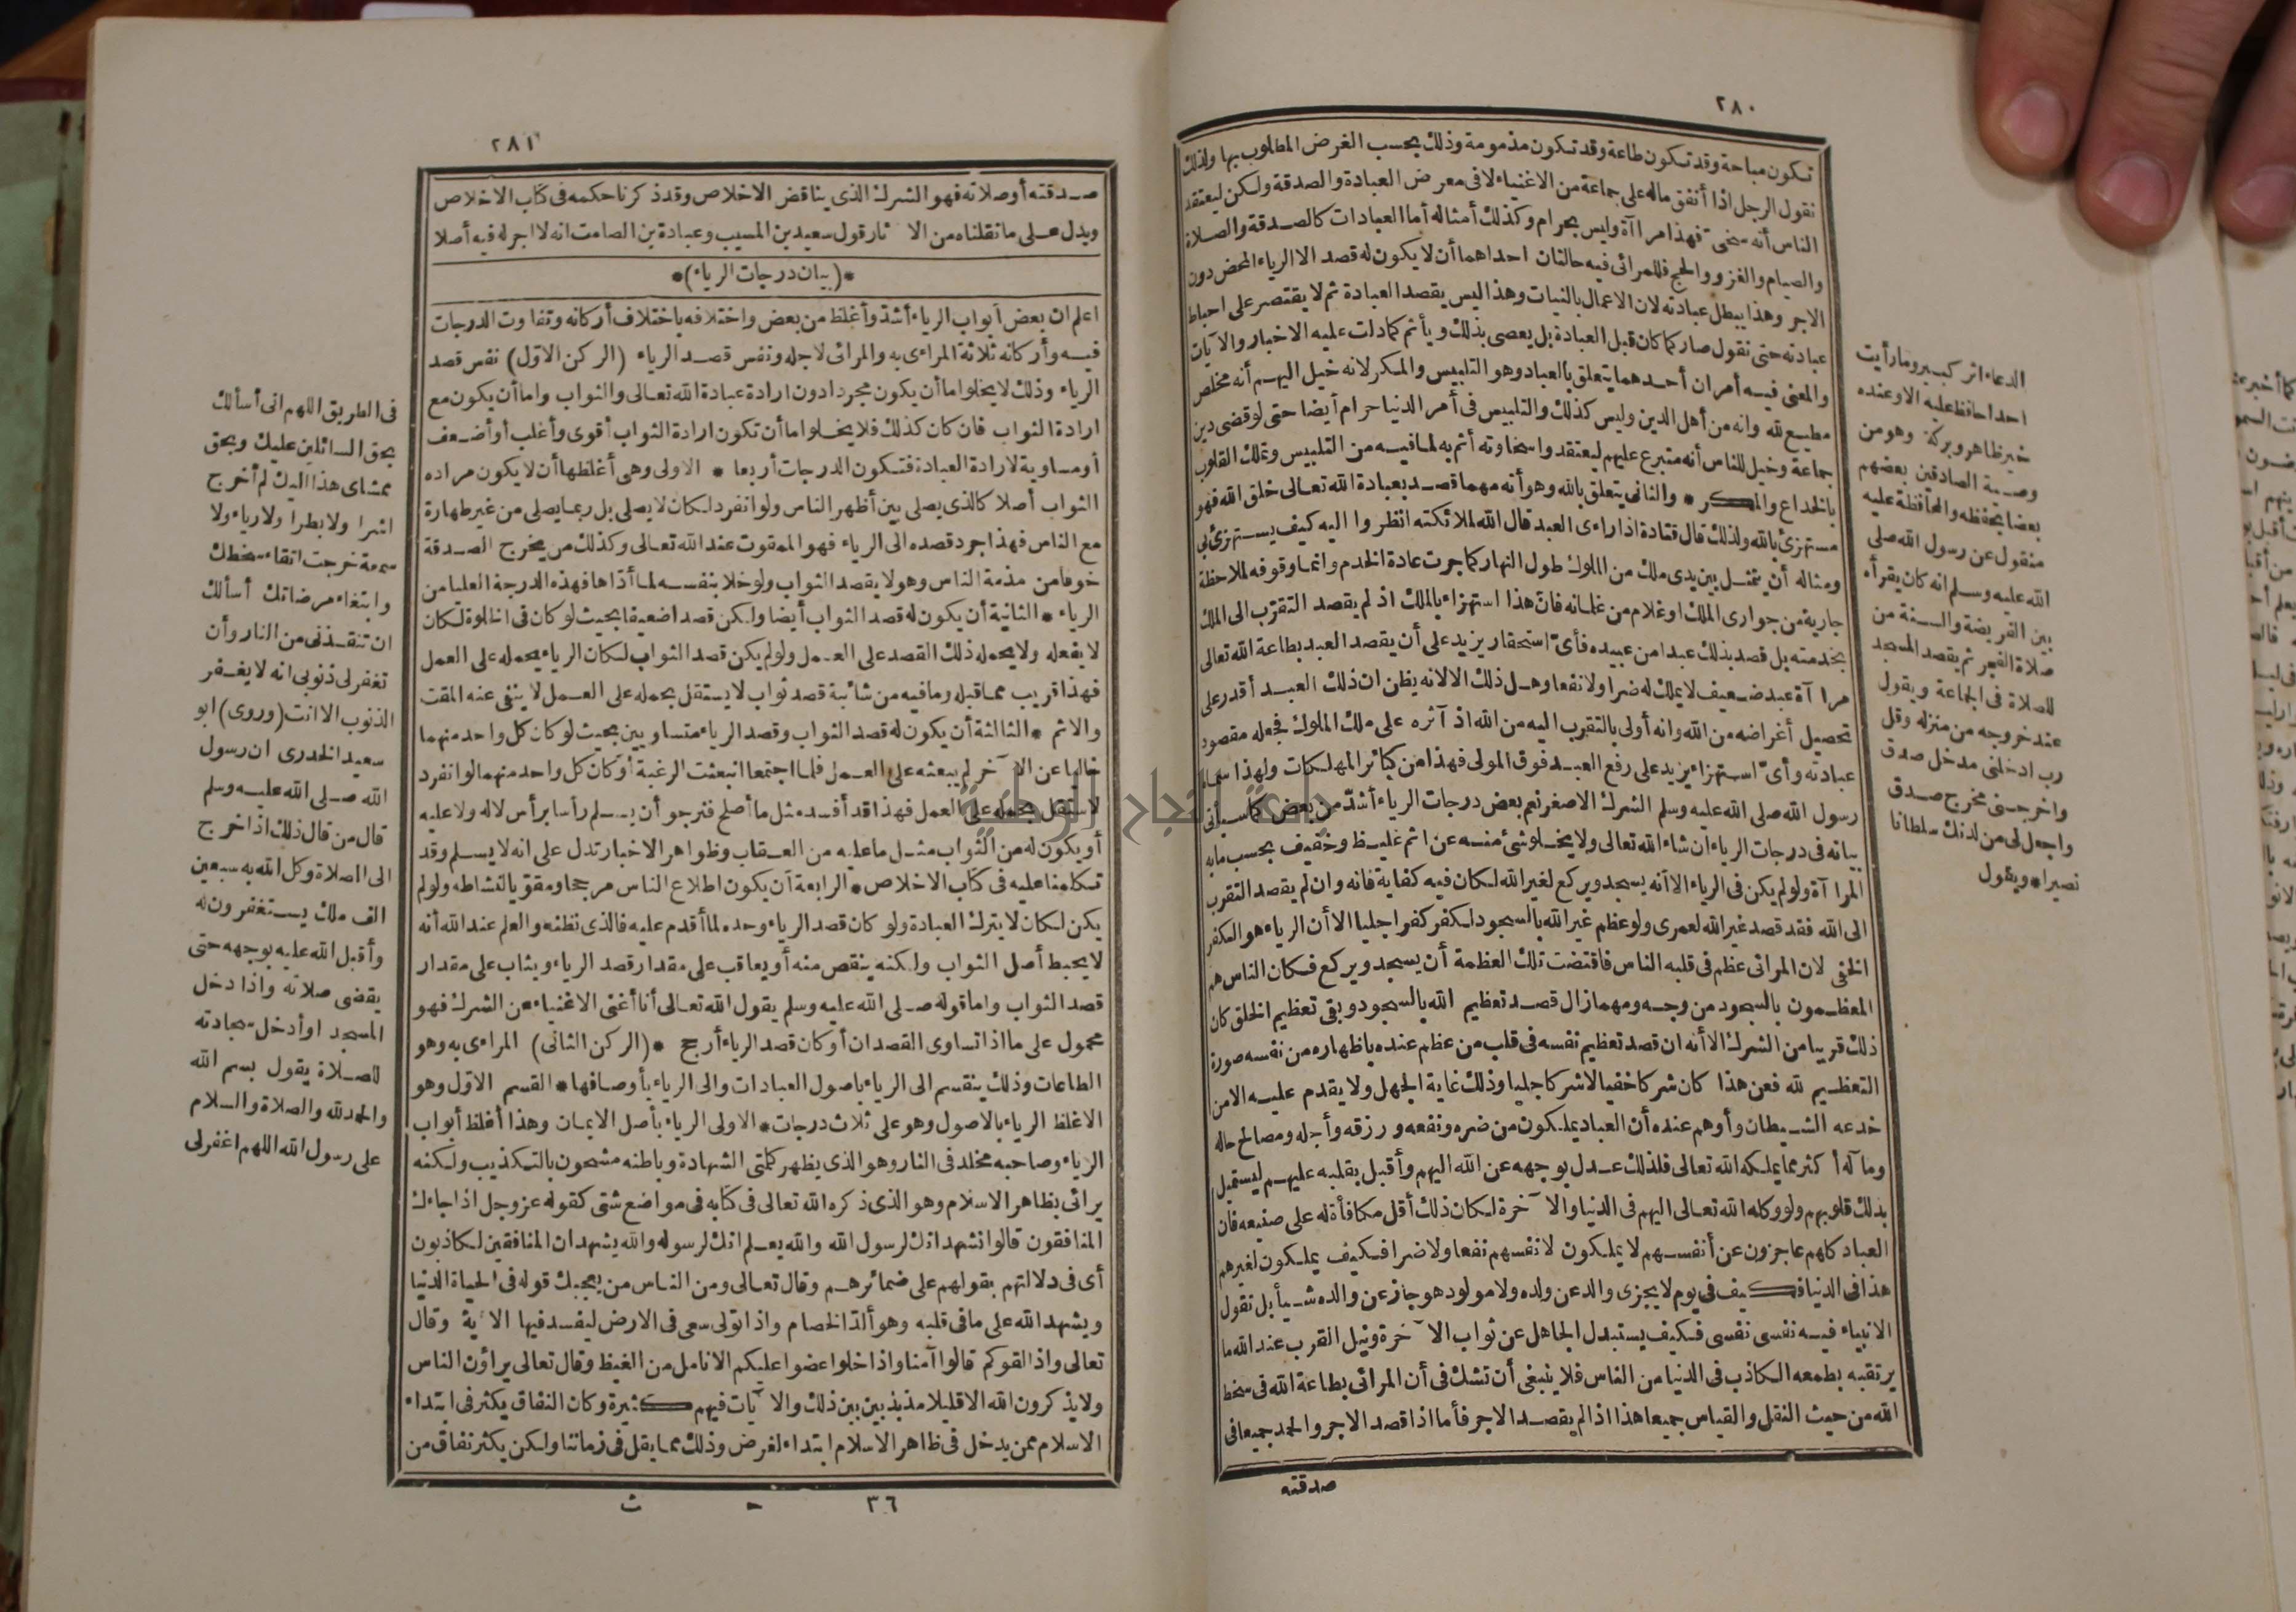 ٢٨٠
تكون مباحة وقد تكون طاعة وقد تكون مذمومة وذلك بحسب الغرض المطلوب بها ولذلك
نقول الرجل اذا أنفق ماله على جماعة من الاغنياء لا فى معرض العبادة والصدقة ولكن ليعتقد
الناس أنه سخى فهذا مرا آة وليس بحرام وكذلك أمثاله أما العبادات كالصدقة والصلاة
والصيام والغزو والحج فللمرائى فيه حالتان احداهما أن لا يكون له قصد الا الرياء المحض دون
الاجر وهذا يبطل عبادته لان الاعمال بالنيات وهذا ليس يقصد العبادة ثم لا يقتصر على احباط
عبادته حتى نقول صار كما كان قبل العبادة بل يعصى بذلك ويأثم كما دلت عليه الاخبار والآيات
والمعنى فيه أمران أحدهما يتعلق بالعباد وهو التلبيس والمكر لانه خيل اليهم أنه مخلص
مطيع لله وانه من أهل الدين وليس كذلك والتلبيس فى أمر الدنيا حرام أيضا حتى لو قضى دين
جماعة وخيل للناس أنه متبرع عليهم ليعتقدوا سخاوته أثم به لما فيه من التلبيس وتملك القلوب
بالخداع والمكر * والثانى يتعلق بالله وهو أنه مهما قصد بعبادة الله تعالى خلق الله فهو
مستهزئ بالله ولذلك قال قتادة اذا راءى العبد قال الله لملائكته انظروا اليه كيف يستهزئ بى
ومثاله أن يتمثل بين يدى ملك من الملوك طول النهار كما جرت عادة الخدم وانما وقوفه لملاحظة
جارية من جوارى الملك او غلام من غلمانه فان هذا استهزاء بالملك اذ لم يقصد التقرب الى الملك
بخدمته بل قصد بذلك عبدا من عبيده فأى استحقار يزيد على أن يقصد العبد بطاعة الله تعالى
مرا آة عبد ضعيف لا يملك له ضرا ولا نفعا وهل ذلك الا لانه يظن ان ذلك العبد أقدر على
تحصيل أغراضه من الله وانه أولى بالتقرب اليه من الله اذ آثره على ملك الملوك فجعله مقصود
عبادته وأى استهزاء يزيد على رفع العبد فوق المولى فهذا من كبائر المهلكات ولهذا سماه
رسول الله صلى الله عليه وسلم الشرك الاصغر نعم بعض درجات الرياء أشد من بعض كما سيأتى
بيانه فى درجات الرياء ان شاء الله تعالى ولا يخلو شئ منه عن اثم غليظ وخفيف بحسب ما به
المرا آة ولو لم يكن فى الرياء الا أنه يسجد ويركع لغير الله لكان فيه كفاية فانه وان لم يقصد التقرب
الى الله فقد قصد غير الله لعمرى ولو عظم غير الله بالسجود لكفر كفرا جليا الا أن الرياء هو الكفر
الخفى لان المرائى عظم فى قلبه الناس فاقتضت تلك العظمة أن يسجد ويركع فكان الناس هم
المعظمون بالسجود من وجه ومهما زال قصد تعظيم الله بالسجود وبقى تعظيم الخلق كان
ذلك قريبا من الشرك الا أنه ان قصد تعظيم نفسه فى قلب من عظم عنده باظهاره من نفسه صورة
التعظيم لله فعن هذا كان شركا خفيا لا شركا جليا وذلك غاية الجهل ولا يقدم عليه الا من
خدعه الشيطان وأوهم عنده أن العباد يملكون من ضره ونفعه ورزقه وأجله ومصالح حاله
ومآ له أكثر مما يملكه الله تعالى فلذلك عدل بوجهه عن الله اليهم وأقبل بقلبه عليهم ليستميل
بذلك قلوبهم ولو وكله الله تعالى اليهم فى الدنيا والا آخرة لكان ذلك أقل مكافأة له على صنيعه فان
العباد كلهم عاجزون عن أنفسهم لا يملكون لانفسهم نفعا ولا ضرا فكيف يملكون لغيرهم
هذا فى الدنيا فكيف فى يوم لا يجزى والد عن ولده ولا مولود هو جاز عن والده شيأ بل تقول
الانبياء فيه نفسى نفسى فكيف يستبدل الجاهل عن ثواب الا آخرة ونيل القرب عند الله ما
يرتقبه بطمعه الكاذب فى الدنيا من الناس فلا ينبغى أن تشك فى أن المرائى بطاعة الله فى سخط
الله من حيث النقل والقياس جميعا هذا اذا لم يقصد الاجر فأما اذا قصد الاجر والحمد جميعا فى
صدقته
الدعاء اثر كبير وما رأيت
احدا حافظ عليه الا وعنده
خير ظاهر وبركة وهو من
وصية الصادقين بعضهم
بعضا بحفظه والمحافظة عليه
منقول عن رسول الله صلى
الله عليه وسلم انه كان يقرأه
بين الفريضة والسنة من
صلاة الفجر ثم يقصد المسجد
للصلاة فى الجماعة ويقول
عند خروجه من منزله وقل
رب ادخلنى مدخل صدق
واخرجنى مخرج صدق
واجعل لى من لدنك سلطانا
نصيرا * ويقول
٢٨١
صدقته أو صلاته فهو الشرك الذى يناقض الاخلاص وقد ذكرنا حكمه فى كتاب الاخلاص
ويدل على ما نقلناه من الا ثار قول سعيد بن المسيب وعبادة بن الصامت انه لا اجر له فيه أصلا
*(بيان درجات الرياء)*
اعلم ان بعض أبواب الرياء أشد وأغلظ من بعض واختلافه باختلاف أركانه وتفاوت الدرجات
فيه وأركانه ثلاثة المراءى به والمرائى لاجله ونفس قصد الرياء (الركن الاول) نفس قصد
الرياء وذلك لا يخلو اما أن يكون مجردا دون ارادة عبادة الله تعالى والثواب واما أن يكون مع
ارادة الثواب فان كان كذلك فلا يخلو اما أن تكون ارادة الثواب أقوى وأغلب أو أضعف
أو مساوية لارادة العبادة فتكون الدرجات أربعا * الاولى وهى أغلظها أن لا يكون مراده
الثواب أصلا كالذى يصلى بين أظهر الناس ولو انفرد لكان لا يصلى بل ربما يصلى من غير طهارة
مع الناس فهذا جرد قصده الى الرياء فهو الممقوت عند الله تعالى وكذلك من يخرج الصدقة
خوفا من مذمة الناس وهو لا يقصد الثواب ولو خلا بنفسه لما أداها فهذه الدرجة العليا من
الرياء * الثانية أن يكون له قصد الثواب أيضا ولكن قصدا ضعيفا بحيث لو كان فى الخلوة لكان
لا يفعله ولا يحمله ذلك القصد على العمل ولو لم يكن قصد الثواب لكان الرياء يحمله على العمل
فهذا قريب مما قبله وما فيه من شائبة قصد ثواب لا يستقل بحمله على العمل لا ينفى عنه المقت
والاثم * الثالثة أن يكون له قصد الثواب وقصد الرياء متساويين بحيث لو كان كل واحد منهما
خاليا عن الا آخر لم يبعثه على العمل فلما اجتمعا انبعثت الرغبة أو كان كل واحد منهما لو انفرد
لاستقل بحمله على العمل فهذا قد أفسد مثل ما أصلح فنرجو أن يسلم رأسا برأس لا له ولا عليه
أو يكون له من الثواب مثل ما عليه من العقاب وظواهر الاخبار تدل على انه لا يسلم وقد
تكلمنا عليه فى كتاب الاخلاص * الرابعة أن يكون اطلاع الناس مرجحا ومقويا لنشاطه ولو لم
يكن لكان لا يترك العبادة ولو كان قصد الرياء وحده لما أقدم عليه فالذى نظنه والعلم عند الله أنه
لا يحبط أصل الثواب ولكنه ينقص منه أو يعاقب على مقدار قصد الرياء ويثاب على مقدار
قصد الثواب واما قوله صلى الله عليه وسلم يقول الله تعالى أنا أغنى الاغنياء عن الشرك فهو
محمول على ما اذا تساوى القصدان أو كان قصد الرياء أرجح * (الركن الثانى) المراءى به وهو
الطاعات وذلك ينقسم الى الرياء باصول العبادات والى الرياء بأوصافها * القسم الاول وهو
الاغلظ الرياء بالاصول وهو على ثلاث درجات * الاولى الرياء بأصل الايمان وهذا أغلظ أبواب
الرياء وصاحبه مخلد فى النار وهو الذى يظهر كلمتى الشهادة وباطنه مشحون بالتكذيب ولكنه
يرائى بظاهر الاسلام وهو الذى ذكره الله تعالى فى كتابه فى مواضع شتى كقوله عز وجل اذا جاءك
المنافقون قالوا نشهد انك لرسول الله والله يعلم انك لرسوله والله يشهد ان المنافقين لكاذبون
أى فى دلالتهم بقولهم على ضمائرهم وقال تعالى ومن الناس من يعجبك قوله فى الحياة الدنيا
ويشهد الله على ما فى قلبه وهو ألد الخصام واذا تولى سعى فى الارض ليفسد فيها الا ية وقال
تعالى واذا لقوكم قالوا آمنا واذا خلوا عضوا عليكم الانامل من الغيظ وقال تعالى يراؤن الناس
ولا يذكرون الله الا قليلا مذبذبين بين ذلك والا آيات فيهم كثيرة وكان النفاق يكثر فى ابتداء
الاسلام ممن يدخل فى ظاهر الاسلام ابتداء لغرض وذلك مما يقل فى زماننا ولكن يكثر نفاق من
٣٦ ـ ث
فى الطريق اللهم انى أسألك
بحق السائلين عليك وبحق
ممشاى هذا اليك لم أخرج
اشرا ولا بطرا ولا رياء ولا
سمعة خرجت اتقاء سخطك
وابتغاء مرضاتك أسألك
ان تنقذنى من النار وأن
تغفر لى ذنوبى انه لا يغفر
الذنوب الا انت (وروى) ابو
سعيد الخدرى ان رسول
الله صلى الله عليه وسلم
قال من قال ذلك اذا خرج
الى الصلاة وكل الله به سبعين
الف ملك يستغفرون له
وأقبل الله عليه بوجهه حتى
يقضى صلاته واذا دخل
المسجد او أدخل سجادته
للصلاة يقول بسم الله
والحمد لله والصلاة والسلام
على رسول الله اللهم اغفر لى
جامعة النجاح الوطنية